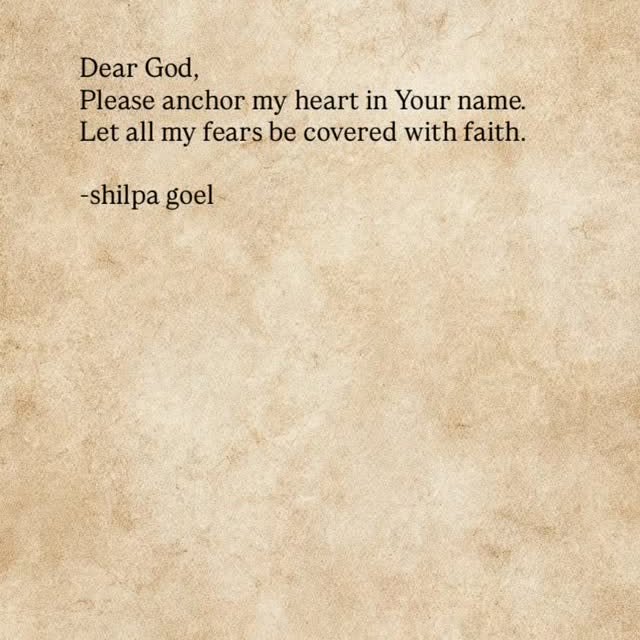 Dear God,
Please anchor my heart in Your name.
Let all my fears be covered with faith.
-shilpa goel